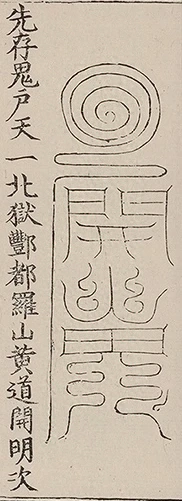 先存鬼戶天一北獄酆都羅山黃道開明次